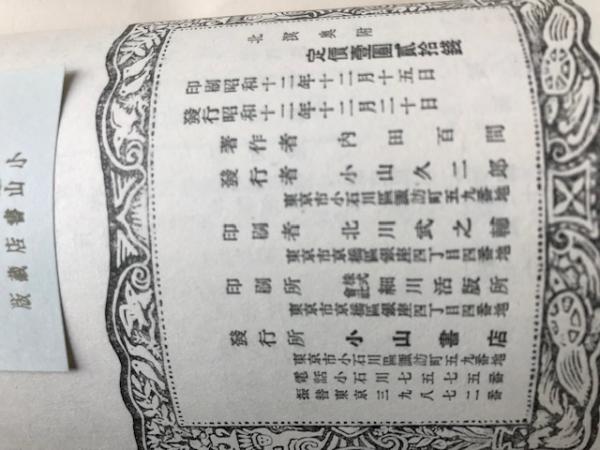 北溟奥附
定價壹圓貳拾錢
印刷昭和十二年十二月十五日
發行昭和十二年十二月二十日
著作者 內田百閒
發行者 小山久二郎
東京市小石川區諏訪町五九番地
印刷者 北川武之輔
東京市京橋區銀座四丁目四番地
印刷所 株式會社細川活版所
東京市京橋區銀座四丁目四番地
發行所 小山書店
東京市小石川區諏訪町五九番地
電話小石川七五七五番
振替東京三九八七二番
小山書店藏版